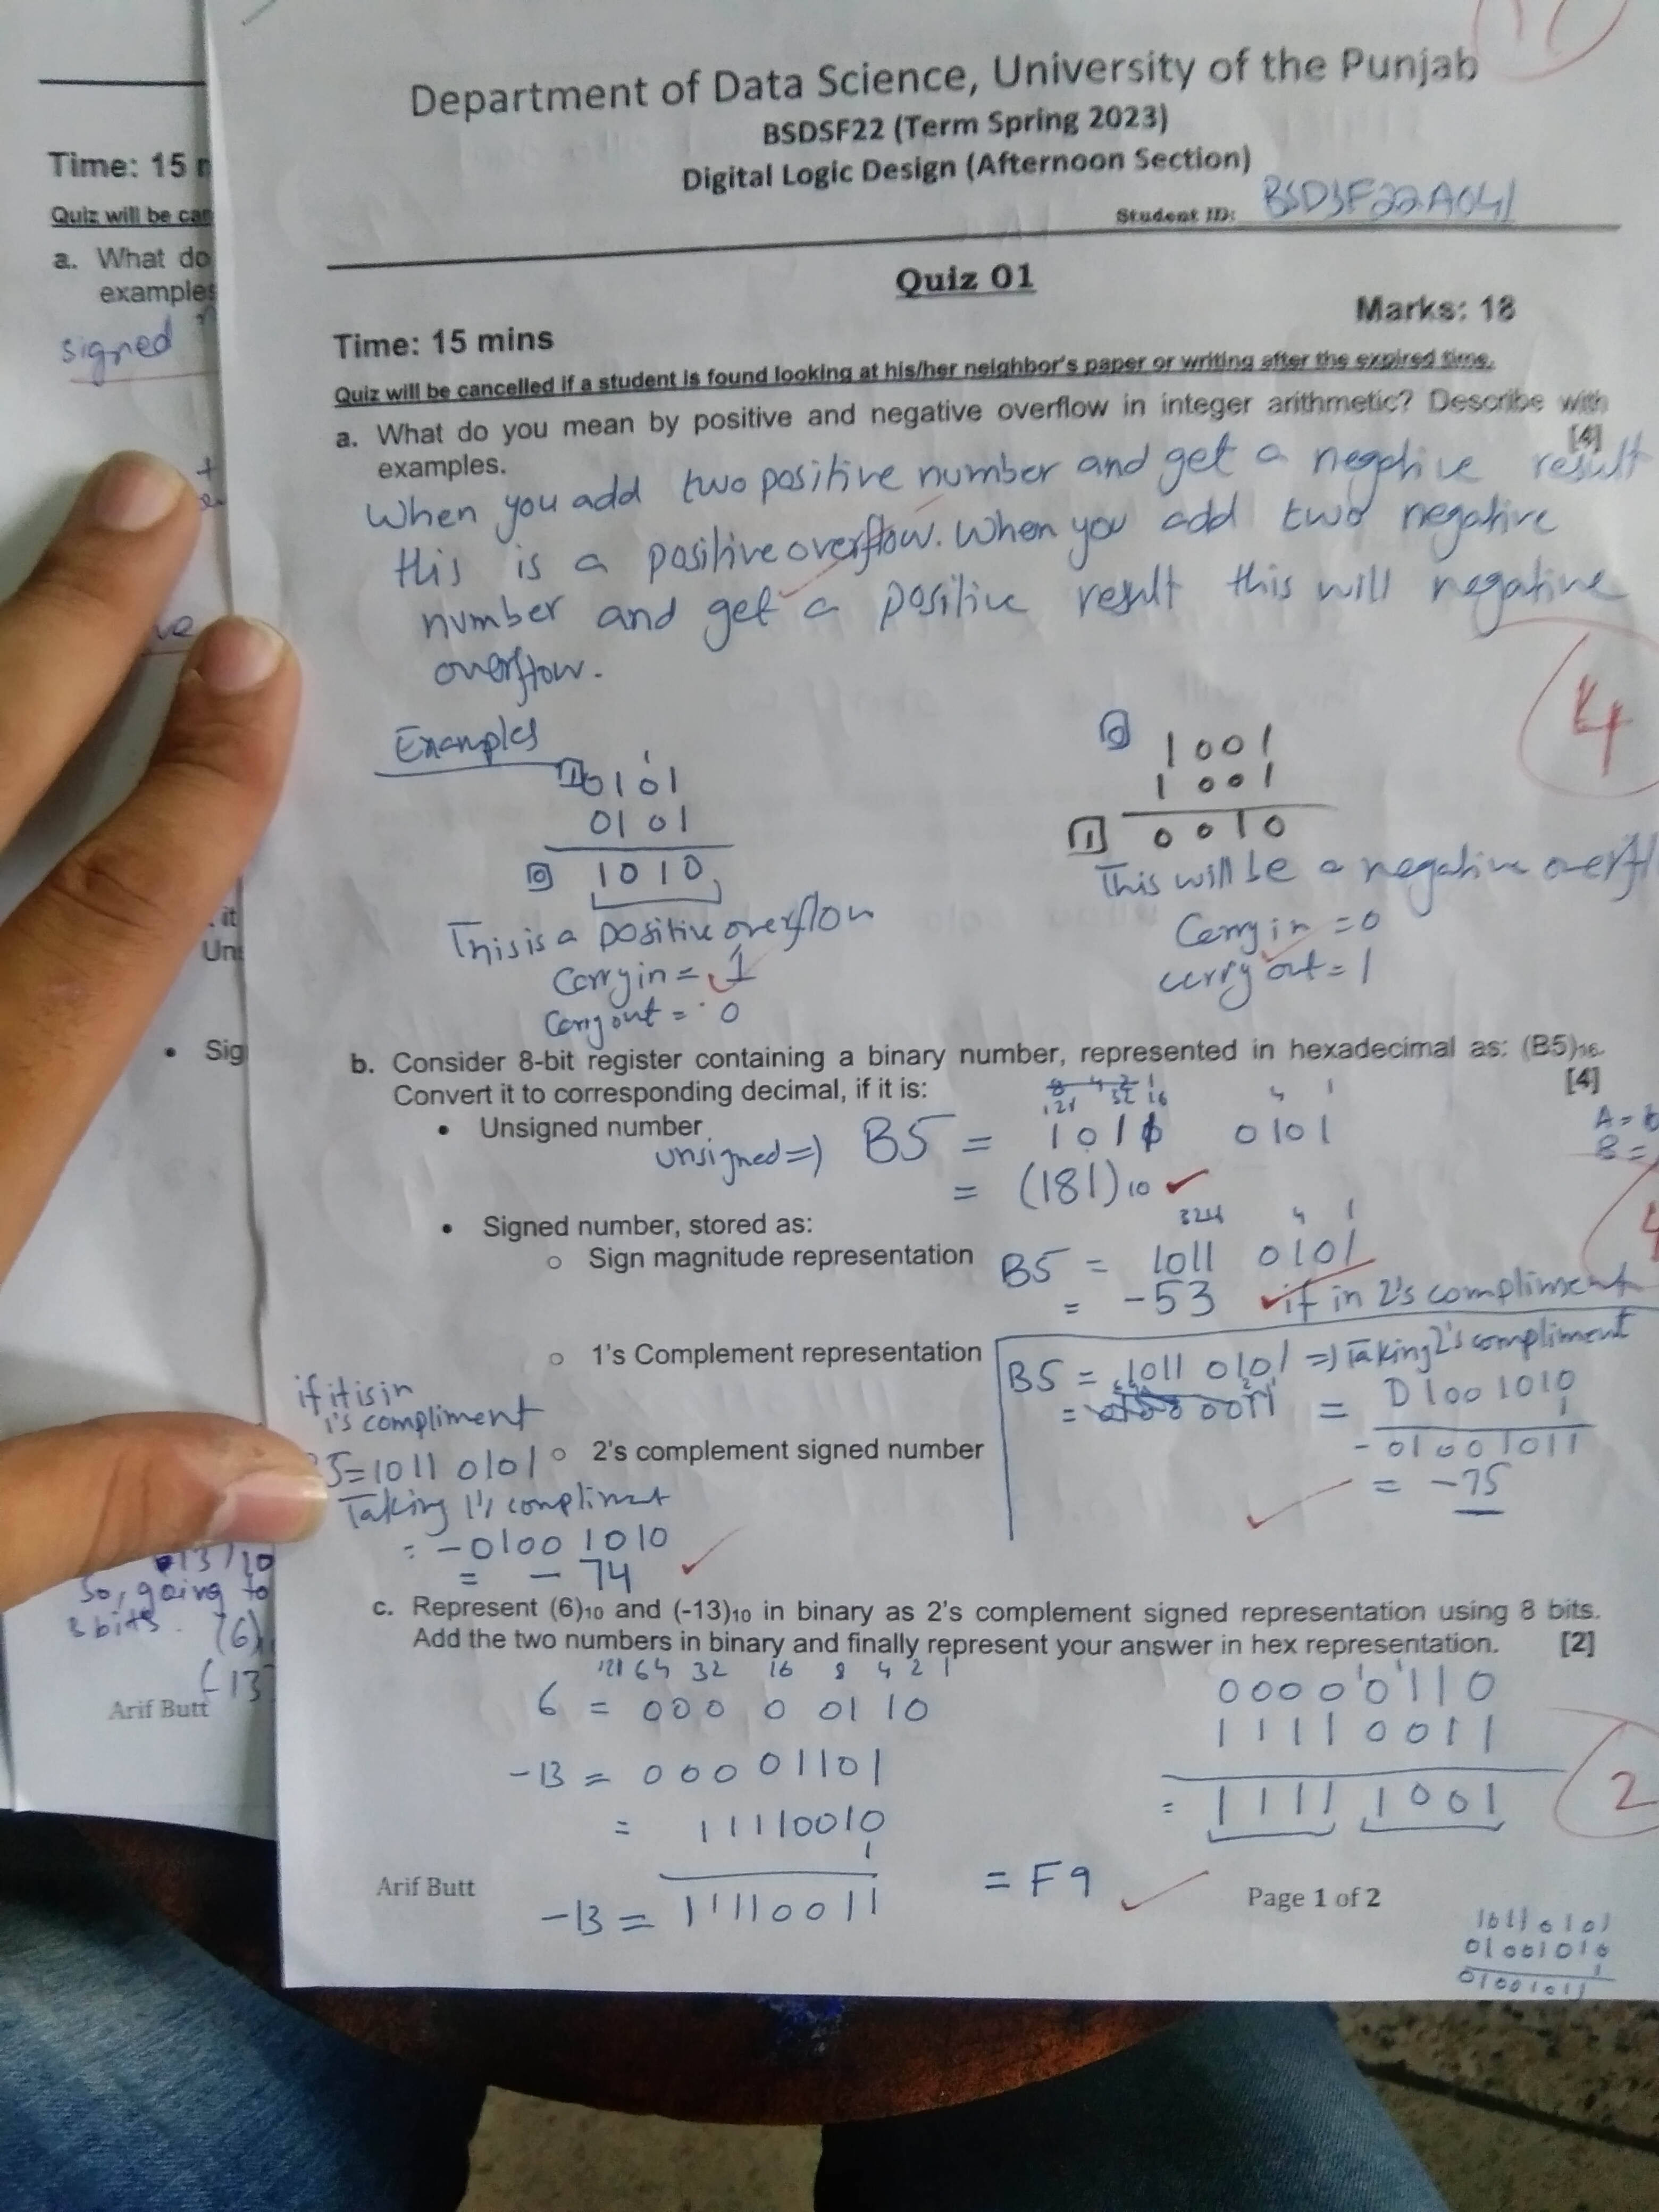 Department of Data Science, University of the Punjab
BSDSF22 (Term Spring 2023)
Digital Logic Design (Afternoon Section)
Student ID: BSDSF22A041
Quiz 01
Time: 15 mins Marks: 18
Quiz will be cancelled if a student is found looking at his/her neighbor's paper or writing after the expired time.
a. What do you mean by positive and negative overflow in integer arithmetic? Describe with
examples. [4]
When you add two positive number and get a negative result
this is a positive overflow. When you add two negative
number and get a positive result this will negative
overflow.
4
Examples
1
1 0101
0101
0 1010
This is a positive overflow
Carry in = 1
Carry out = 0
0 1001
1001
1 0010
This will be a negative overfl
Carry in = 0
carry out = 1
b. Consider 8-bit register containing a binary number, represented in hexadecimal as: (B5)16.
Convert it to corresponding decimal, if it is: [4]
• Unsigned number
unsigned => B5 = 1011 0101
= (181)10
• Signed number, stored as:
o Sign magnitude representation
B5 = 1011 0101
= -53
if in 2's compliment
o 1's Complement representation
B5 = 1011 0101 => Taking 2's compliment
= 01001010
1
- 01001011
= -75
if it is in
1's compliment
o 2's complement signed number
5=1011 0101
Taking 1's complimet
= -0100 1010
= - 74
c. Represent (6)10 and (-13)10 in binary as 2's complement signed representation using 8 bits.
Add the two numbers in binary and finally represent your answer in hex representation. [2]
64 32 16 8 4 2 1
6 = 000 0 01 10
-13 = 00001101
= 11110010
1
-13 = 11110011
00000110
11110011
= 1111 1001
2
= F9
Arif Butt
Page 1 of 2
10110101
01001010
1
01001011
Time: 15
Quiz will be
a. What do
examples
signed
it
• Sig
So, going to
8 bits. (6)
(-13
Arif Butt